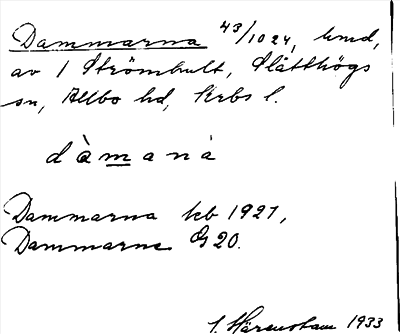 Dammarna 43/1024, hmd,
av 1 Strömhult, Slätthögs
sn, Allbo hd, Krbs l.
dàmaná
Dammarna kb 1921,
Dammarne G 20.
1933